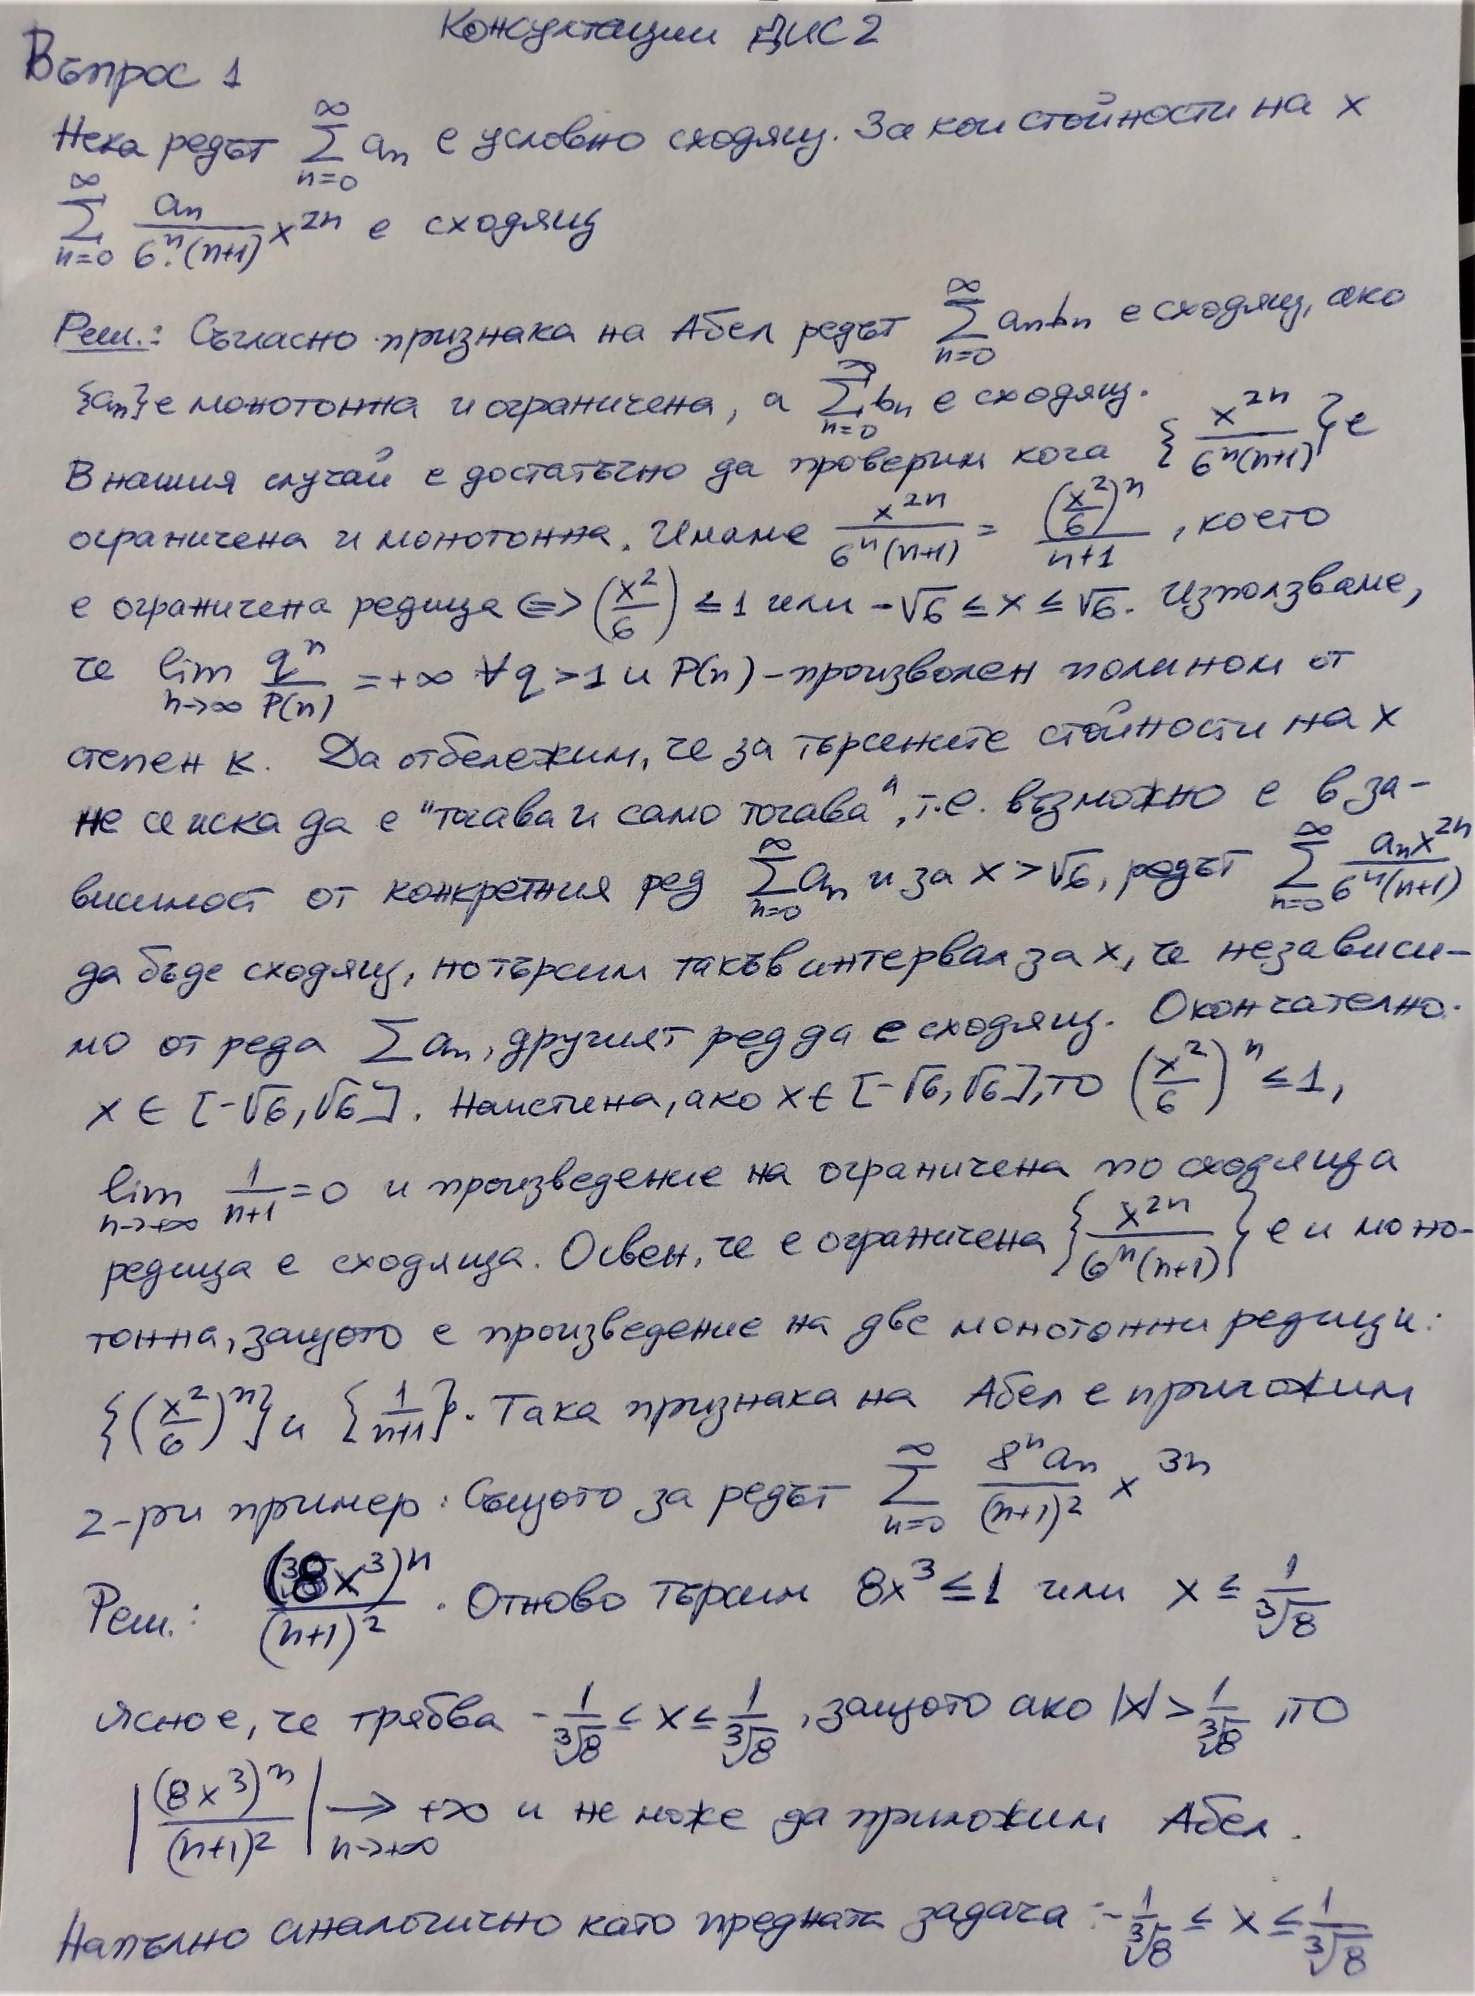 Консултации ДИС 2
Въпрос 1
Нека редът $\sum_{n=0}^{\infty} a_n$ е условно сходящ. За кои стойности на x
$\sum_{n=0}^{\infty} \frac{a_n}{6^n.(n+1)} x^{2n}$ е сходящ
Реш.: Съгласно признака на Абел редът $\sum_{n=0}^{\infty} a_n b_n$ е сходящ, ако
$\{a_n\}$ е монотонна и ограничена, а $\sum_{n=0}^{\infty} b_n$ е сходящ.
В нашия случай е достатъчно да проверим кога $\{\frac{x^{2n}}{6^n(n+1)}\}$ е
ограничена и монотонна. Имаме $\frac{x^{2n}}{6^n(n+1)} = \frac{(\frac{x^2}{6})^n}{n+1}$, което
е ограничена редица $\Leftrightarrow (\frac{x^2}{6}) \leq 1$ или $-\sqrt{6} \leq x \leq \sqrt{6}$. Използваме,
че $\lim_{n\to\infty} \frac{q^n}{P(n)} = +\infty$ $\forall q > 1$ и P(n) – произволен полином от
степен k. Да отбележим, че за търсените стойности на x
не се иска да е "тогава и само тогава", т.е. възможно е в за-
висимост от конкретния ред $\sum_{n=0}^{\infty} a_n$ и за $x > \sqrt{6}$, редът $\sum_{n=0}^{\infty} \frac{a_n x^{2n}}{6^n(n+1)}$
да бъде сходящ, но търсим такъв интервал за x, че независи-
мо от реда $\sum a_n$, другият ред да е сходящ. Окончателно.
$x \in [-\sqrt{6}, \sqrt{6}]$. Наистина, ако $x \in [-\sqrt{6}, \sqrt{6}]$, то $(\frac{x^2}{6})^n \leq 1$,
$\lim_{n\to+\infty} \frac{1}{n+1} = 0$ и произведение на ограничена по сходяща
редица е сходяща. Освен, че е ограничена $\{\frac{x^{2n}}{6^n(n+1)}\}$ е и моно-
тонна, защото е произведение на две монотонни редици:
$\{(\frac{x^2}{6})^n\}$ и $\{\frac{1}{n+1}\}$. Така признака на Абел е приложим
2-ри пример: Същото за редът $\sum_{n=0}^{\infty} \frac{8^n a_n}{(n+1)^2} x^{3n}$
Реш.: $\frac{(8x^3)^n}{(n+1)^2}$. Отново търсим $8x^3 \leq 1$ или $x \leq \frac{1}{\sqrt[3]{8}}$
Ясно е, че трябва $-\frac{1}{\sqrt[3]{8}} \leq x \leq \frac{1}{\sqrt[3]{8}}$, защото ако $|x| > \frac{1}{\sqrt[3]{8}}$, то
$\left|\frac{(8x^3)^n}{(n+1)^2}\right| \xrightarrow[n\to+\infty]{} +\infty$ и не може да приложим Абел.
Напълно аналогично като предната задача: $-\frac{1}{\sqrt[3]{8}} \leq x \leq \frac{1}{\sqrt[3]{8}}$